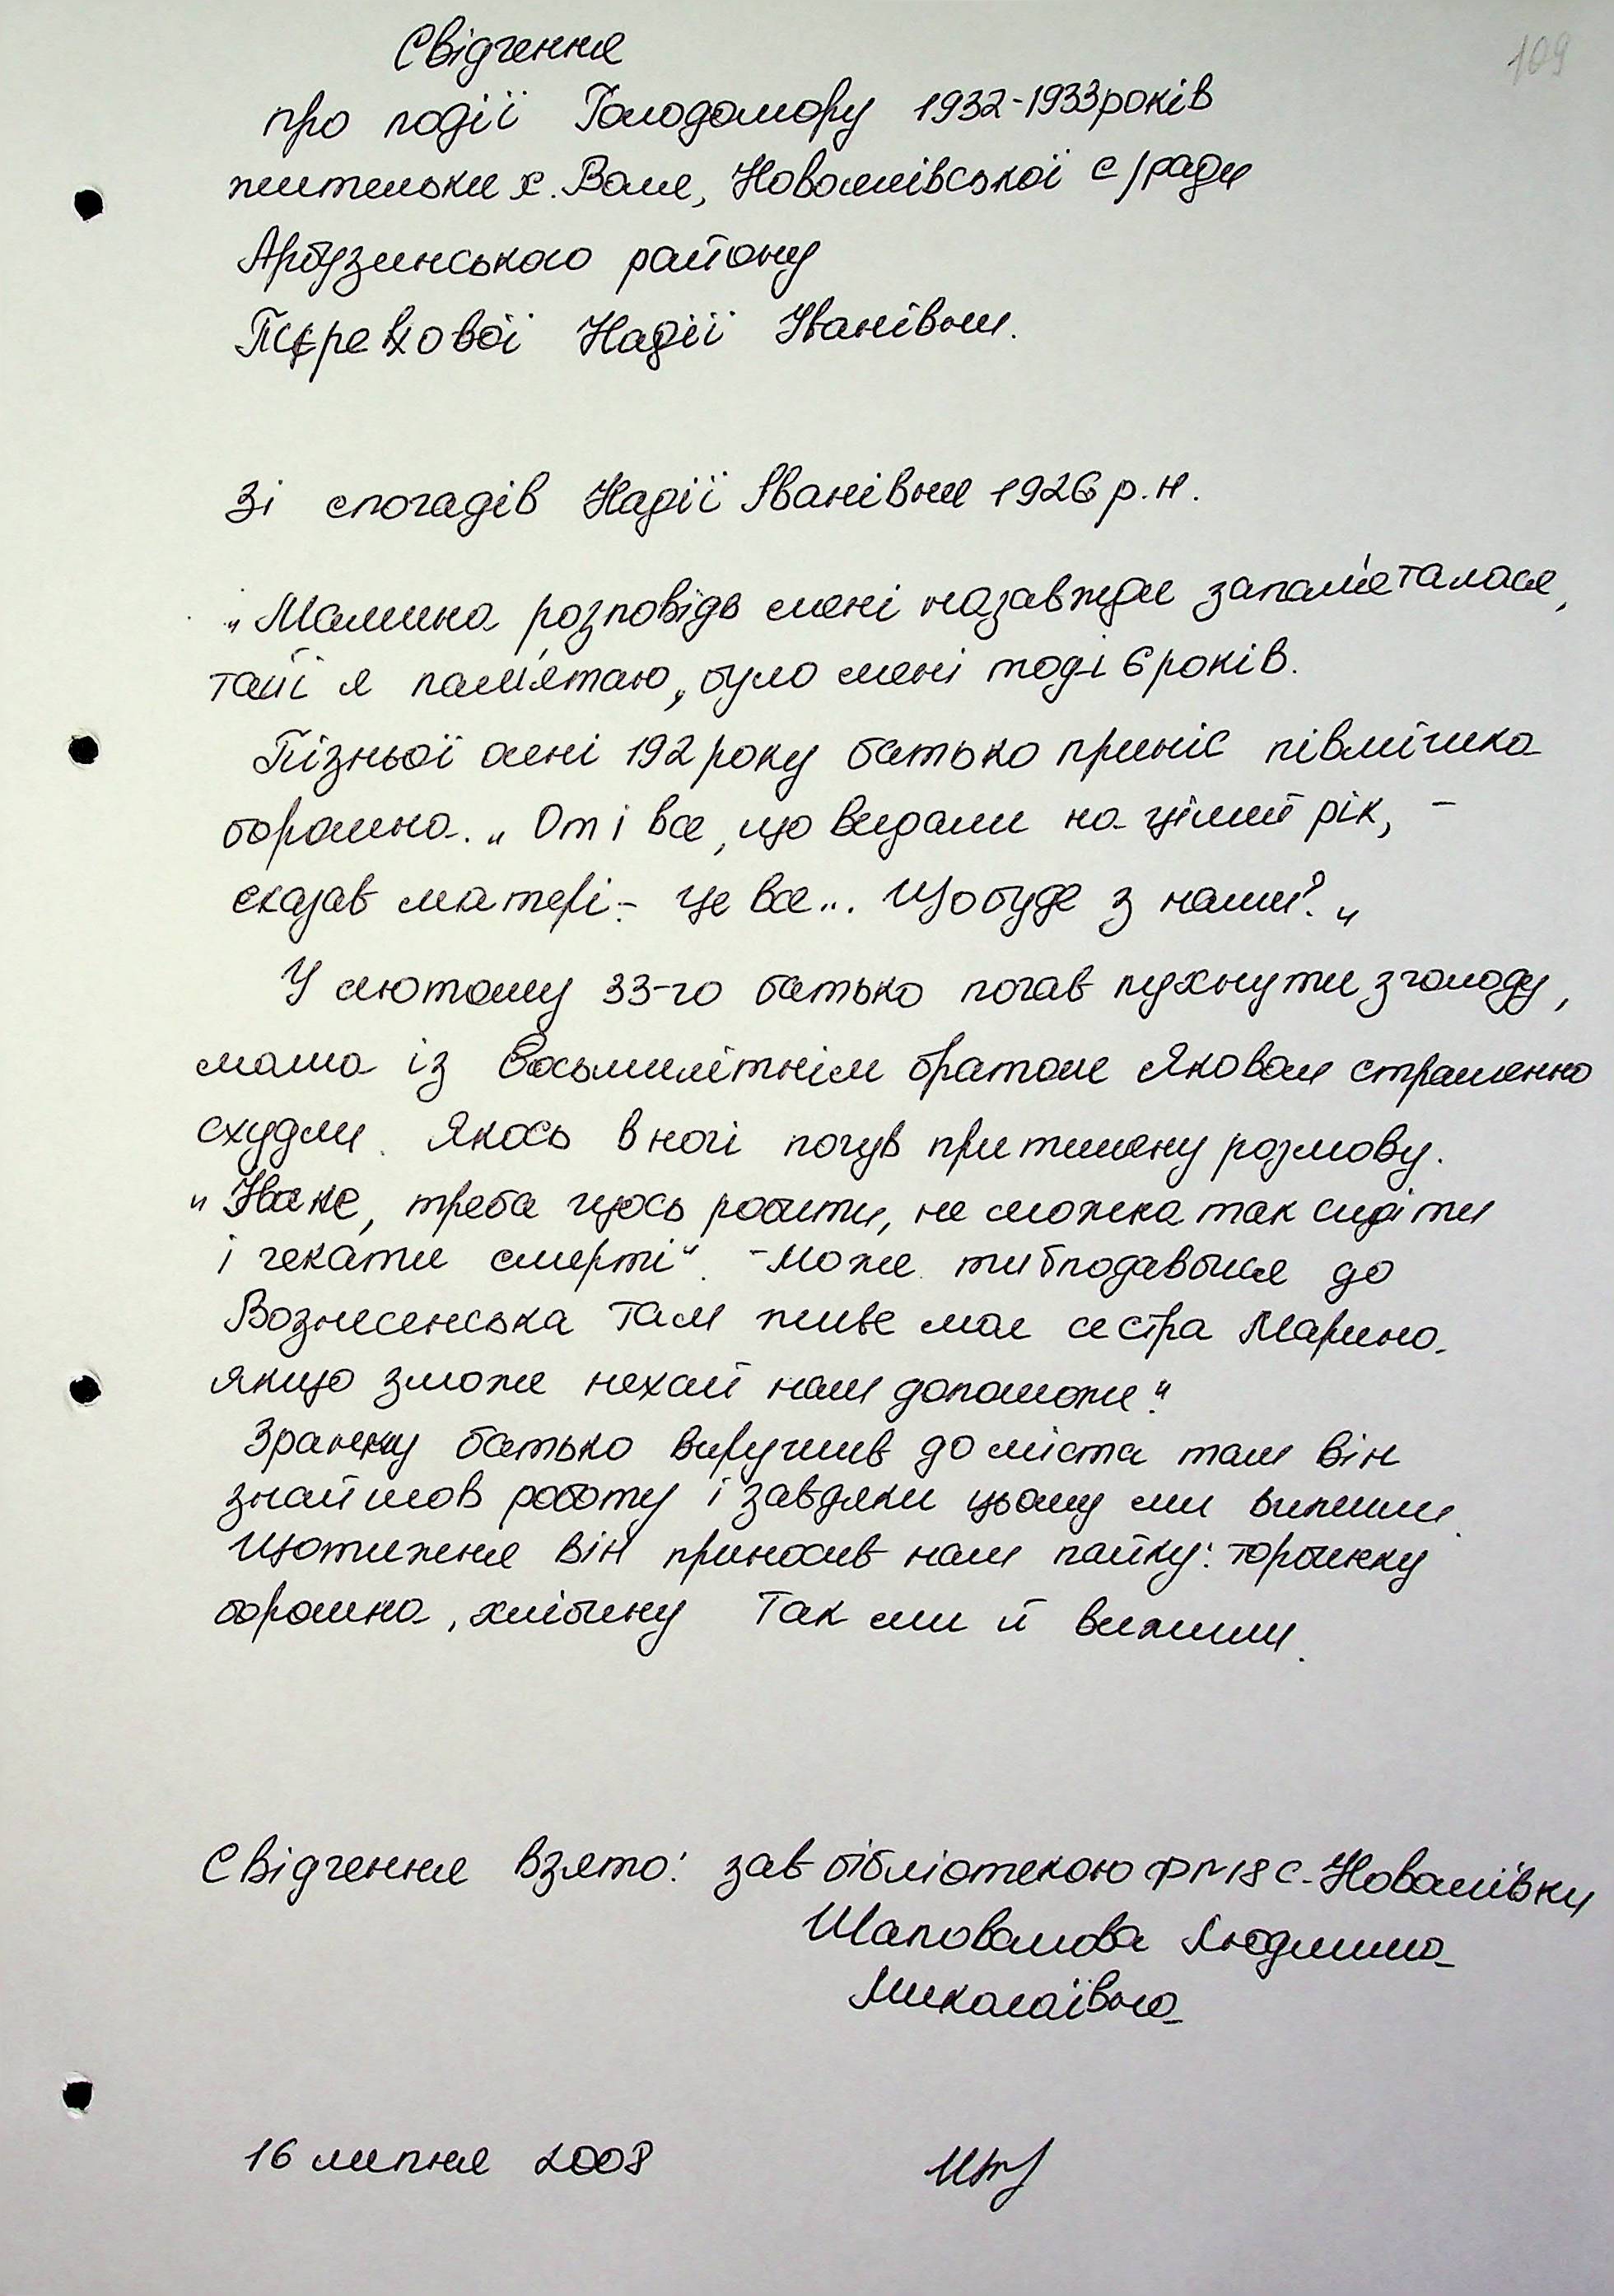 109
Свідчення
про події Голодомору 1932-1933 років
жительки х. Воля, Новоолнівської с/ради
Арбузинського району
Пєрехової Надії Іванівни.
Зі спогадів Надії Іванівни 1926 р.н.
„Мамина розповідь мені назавжди запам'яталася,
тай і я пам'ятаю, було мені тоді 6 років.
Пізньої осені 192 року батько приніс півмішка
борошна. „От і все, що видали на цілий рік, -
сказав матері. - це все... Що буде з нами? „
У лютому 33-го батько почав пухнути з голоду,
мама із восьмилітнім братом Яковом страшенно
схудли. Якось вночі почув притишену розмову.
„Іване, треба щось робити, не можна так сидіти
і чекати смерті". - Може ти б подавбися до
Вознесенська там живе моя сестра Марина.
якщо зможе нехай нам допоможе."
Зранку батько вирушив до міста там він
знайшов роботу і завдяки цьому ми вижили.
Щотижня він приносив нам пайку: торбинку
борошна, хлібину Так ми й вижили.
Свідчення взято: зав бібліотекою ф№18 с. Новоолнівки
Шаповалова Людмила
Миколаївна
16 липня 2008